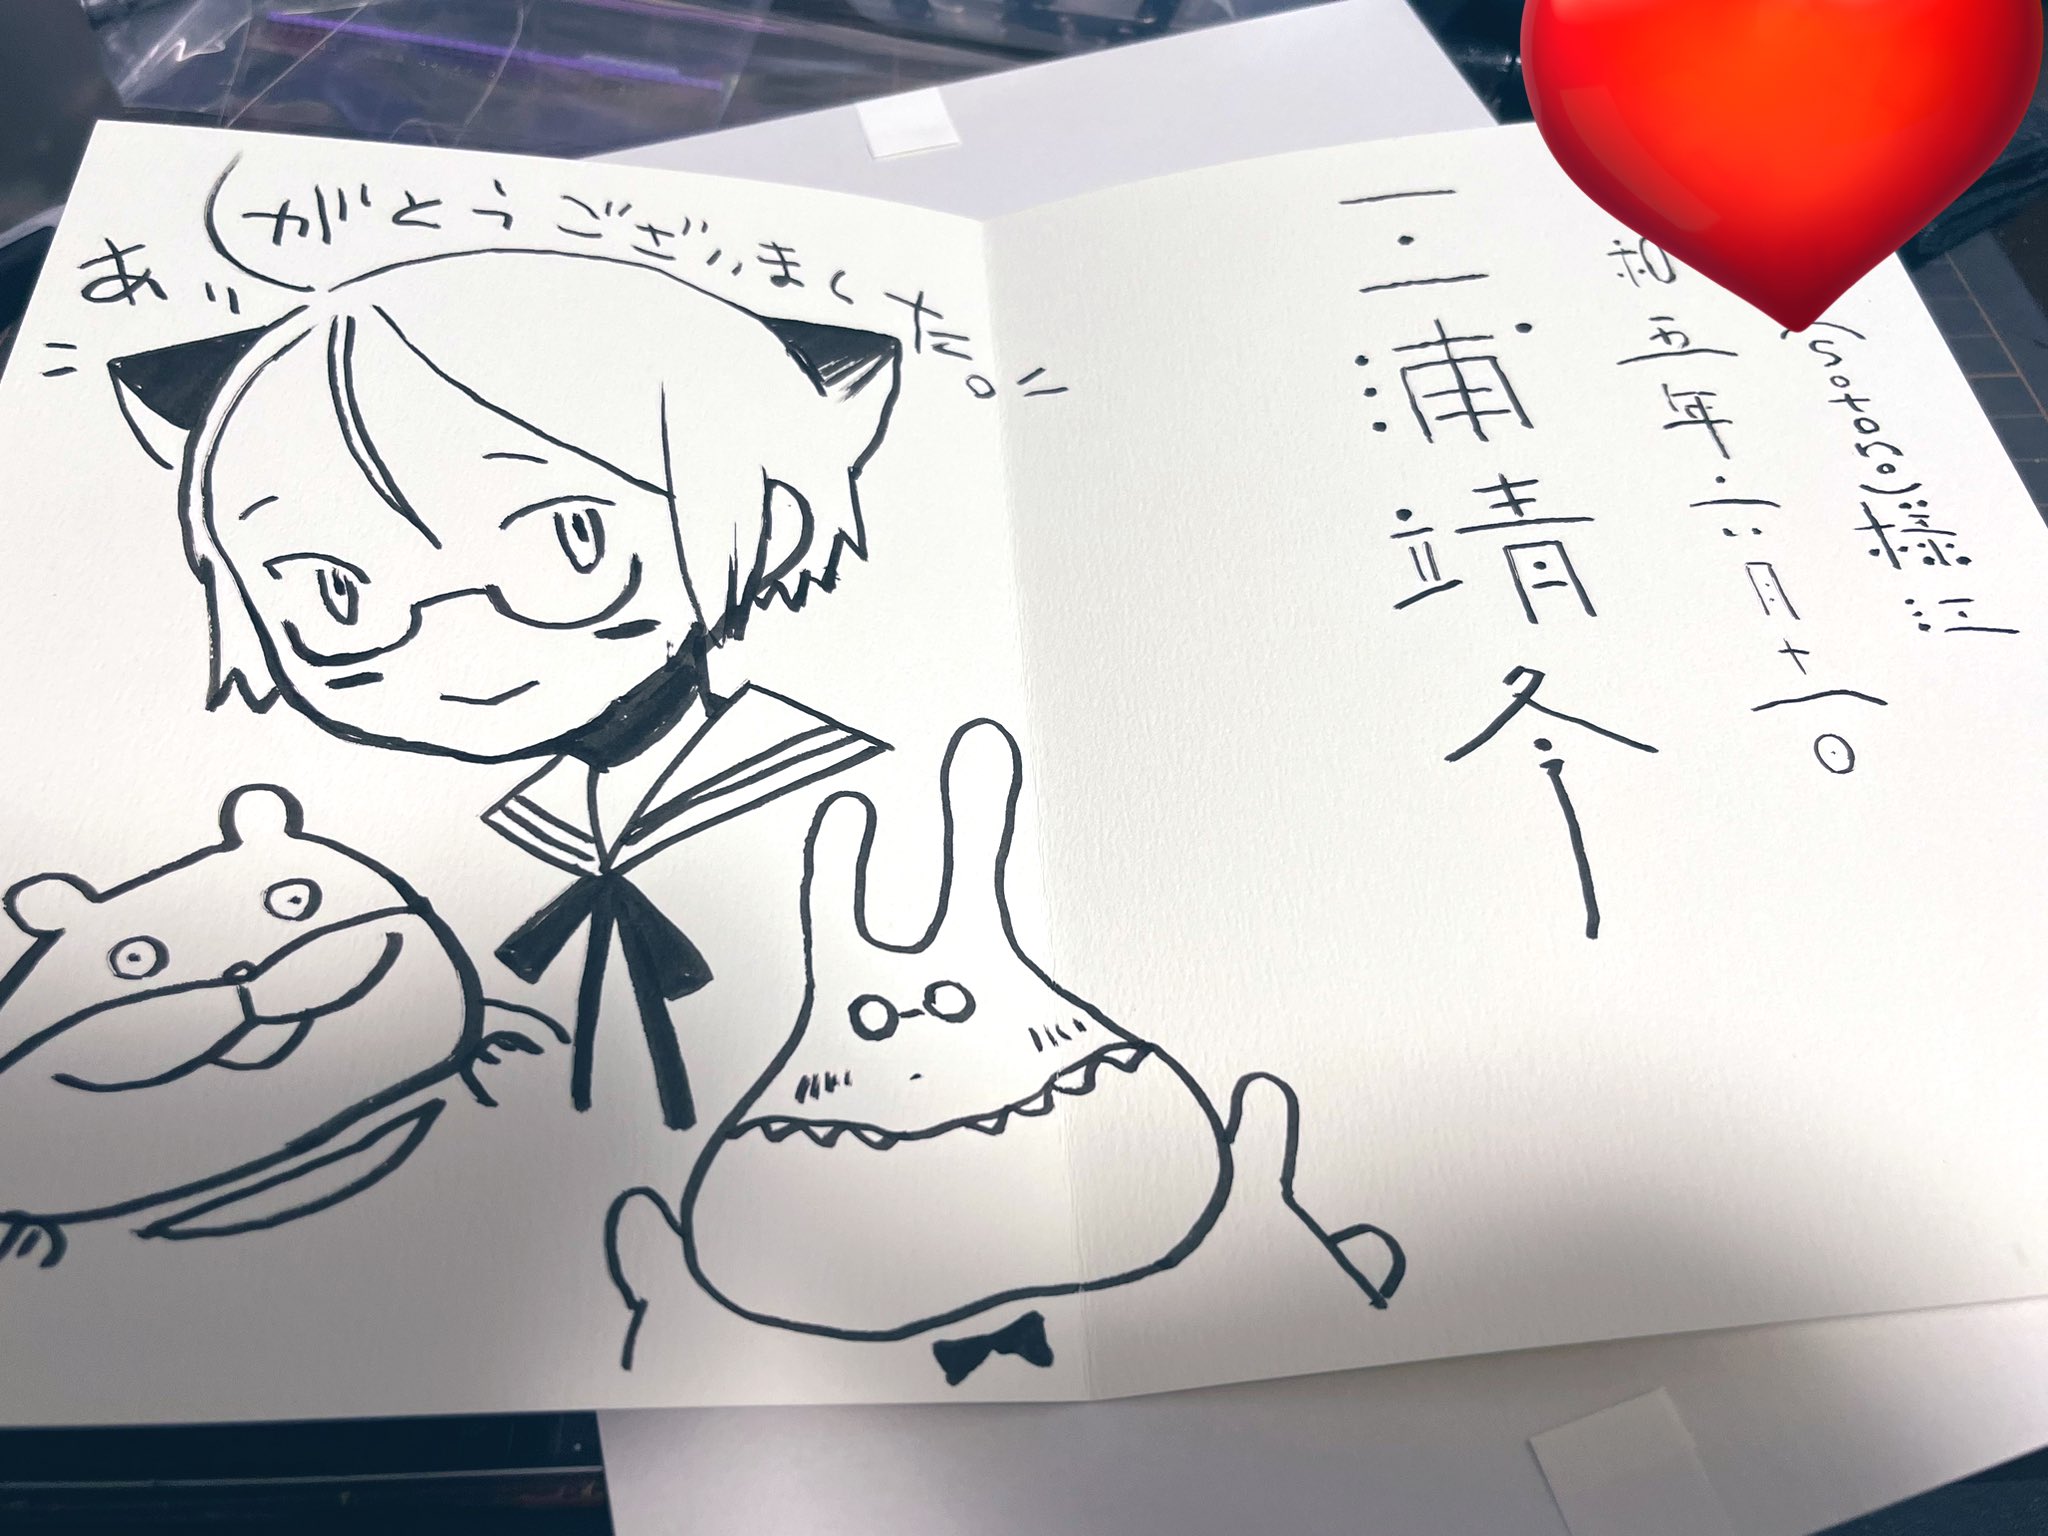 ありがとうございました。
様江
和五年六月十一日
三浦靖冬